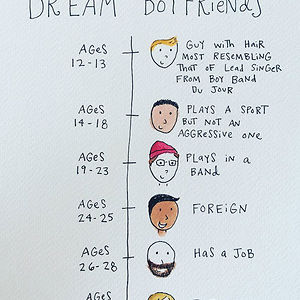 DREAM BOYFRIENDS
AGES
12-13
GUY WITH HAIR
MOST RESEMBLING
THAT OF LEAD SINGER
FROM BOY BAND
DU JOUR
AGES
14-18
PLAYS A SPORT
BUT NOT AN
AGGRESSIVE ONE
AGES
19-23
PLAYS IN A
BAND
AGES
24-25
FOREIGN
AGES
26-28
HAS A JOB
AGES